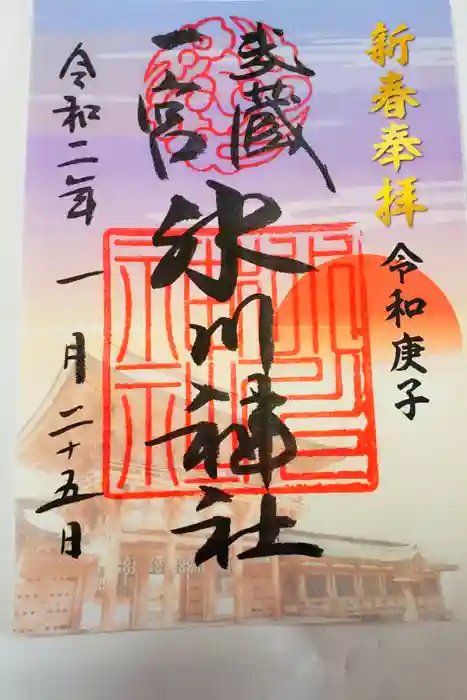 新春奉拝
令和庚子
武蔵
一宮
氷川神社
令和二年
一月二十五日